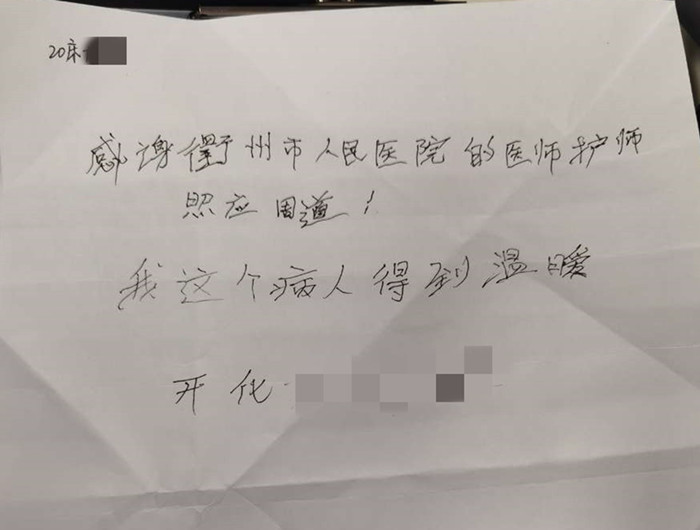 20床
感谢衢州市人民医院的医师护师
照应周道！
我这个病人得到温暖
开化